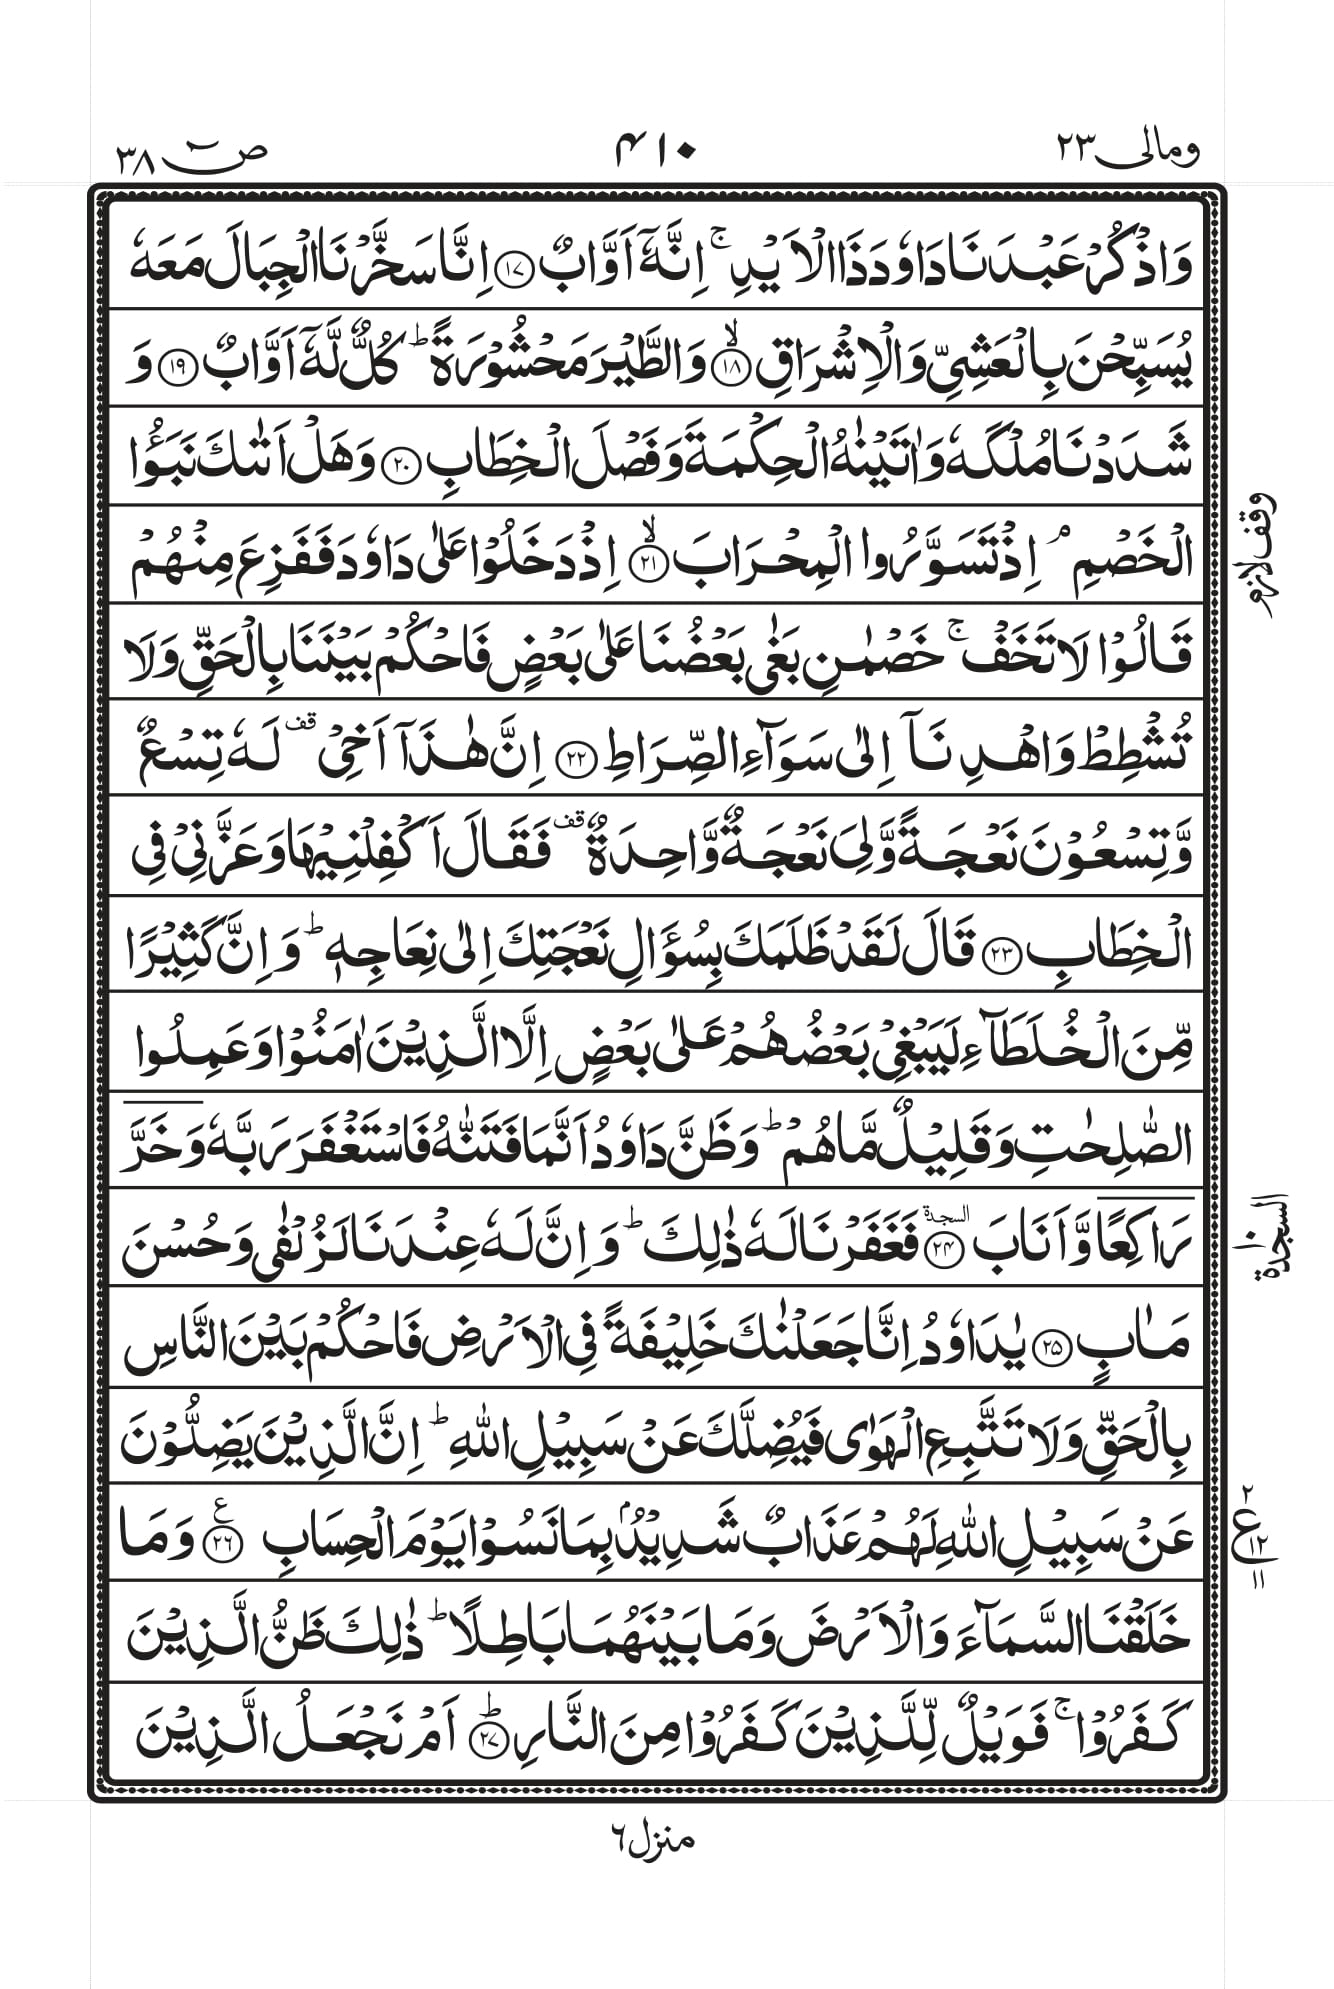 ومالی ۲۳
۴۱۰
صٓ ۳۸
وَاذْكُرْ عَبْدَنَا دَاوٗدَ ذَا الْاَيْدِ ۚ اِنَّهٗۤ اَوَّابٌ ﴿۱۷﴾ اِنَّا سَخَّرْنَا الْجِبَالَ مَعَهٗ
يُسَبِّحْنَ بِالْعَشِىِّ وَالْاِشْرَاقِ ۙ﴿۱۸﴾ وَالطَّيْرَ مَحْشُوْرَةً ؕ كُلٌّ لَّهٗۤ اَوَّابٌ ﴿۱۹﴾ وَ
شَدَدْنَا مُلْكَهٗ وَاٰتَيْنٰهُ الْحِكْمَةَ وَفَصْلَ الْخِطَابِ ﴿۲۰﴾ وَهَلْ اَتٰىكَ نَبَؤُا
الْخَصْمِ ۘ اِذْ تَسَوَّرُوا الْمِحْرَابَ ۙ﴿۲۱﴾ اِذْ دَخَلُوْا عَلٰى دَاوٗدَ فَفَزِعَ مِنْهُمْ
وقف لازم
قَالُوْا لَا تَخَفْ ۚ خَصْمٰنِ بَغٰى بَعْضُنَا عَلٰى بَعْضٍ فَاحْكُمْ بَيْنَنَا بِالْحَقِّ وَلَا
تُشْطِطْ وَاهْدِنَاۤ اِلٰى سَوَآءِ الصِّرَاطِ ﴿۲۲﴾ اِنَّ هٰذَاۤ اَخِىْ قف لَهٗ تِسْعٌ
وَّتِسْعُوْنَ نَعْجَةً وَّلِىَ نَعْجَةٌ وَّاحِدَةٌ قف فَقَالَ اَكْفِلْنِيْهَا وَعَزَّنِىْ فِى
الْخِطَابِ ﴿۲۳﴾ قَالَ لَقَدْ ظَلَمَكَ بِسُؤَالِ نَعْجَتِكَ اِلٰى نِعَاجِهٖ ؕ وَاِنَّ كَثِيْرًا
مِّنَ الْخُلَطَآءِ لَيَبْغِىْ بَعْضُهُمْ عَلٰى بَعْضٍ اِلَّا الَّذِيْنَ اٰمَنُوْا وَعَمِلُوا
الصّٰلِحٰتِ وَقَلِيْلٌ مَّا هُمْ ؕ وَظَنَّ دَاوٗدُ اَنَّمَا فَتَنّٰهُ فَاسْتَغْفَرَ رَبَّهٗ وَخَرَّ
رَاكِعًا وَّاَنَابَ السجدة ﴿۲۴﴾ فَغَفَرْنَا لَهٗ ذٰلِكَ ؕ وَاِنَّ لَهٗ عِنْدَنَا لَزُلْفٰى وَحُسْنَ
السجدة ۱۰
مَاٰبٍ ﴿۲۵﴾ يٰدَاوٗدُ اِنَّا جَعَلْنٰكَ خَلِيْفَةً فِى الْاَرْضِ فَاحْكُمْ بَيْنَ النَّاسِ
بِالْحَقِّ وَلَا تَتَّبِعِ الْهَوٰى فَيُضِلَّكَ عَنْ سَبِيْلِ اللّٰهِ ؕ اِنَّ الَّذِيْنَ يَضِلُّوْنَ
عَنْ سَبِيْلِ اللّٰهِ لَهُمْ عَذَابٌ شَدِيْدٌۢ بِمَا نَسُوْا يَوْمَ الْحِسَابِ ع ﴿۲۶﴾ وَمَا
۲ ع ۱۲ ۱۱
خَلَقْنَا السَّمَآءَ وَالْاَرْضَ وَمَا بَيْنَهُمَا بَاطِلًا ؕ ذٰلِكَ ظَنُّ الَّذِيْنَ
كَفَرُوْا ۚ فَوَيْلٌ لِّلَّذِيْنَ كَفَرُوْا مِنَ النَّارِ ؕ﴿۲۷﴾ اَمْ نَجْعَلُ الَّذِيْنَ
منزل ٦